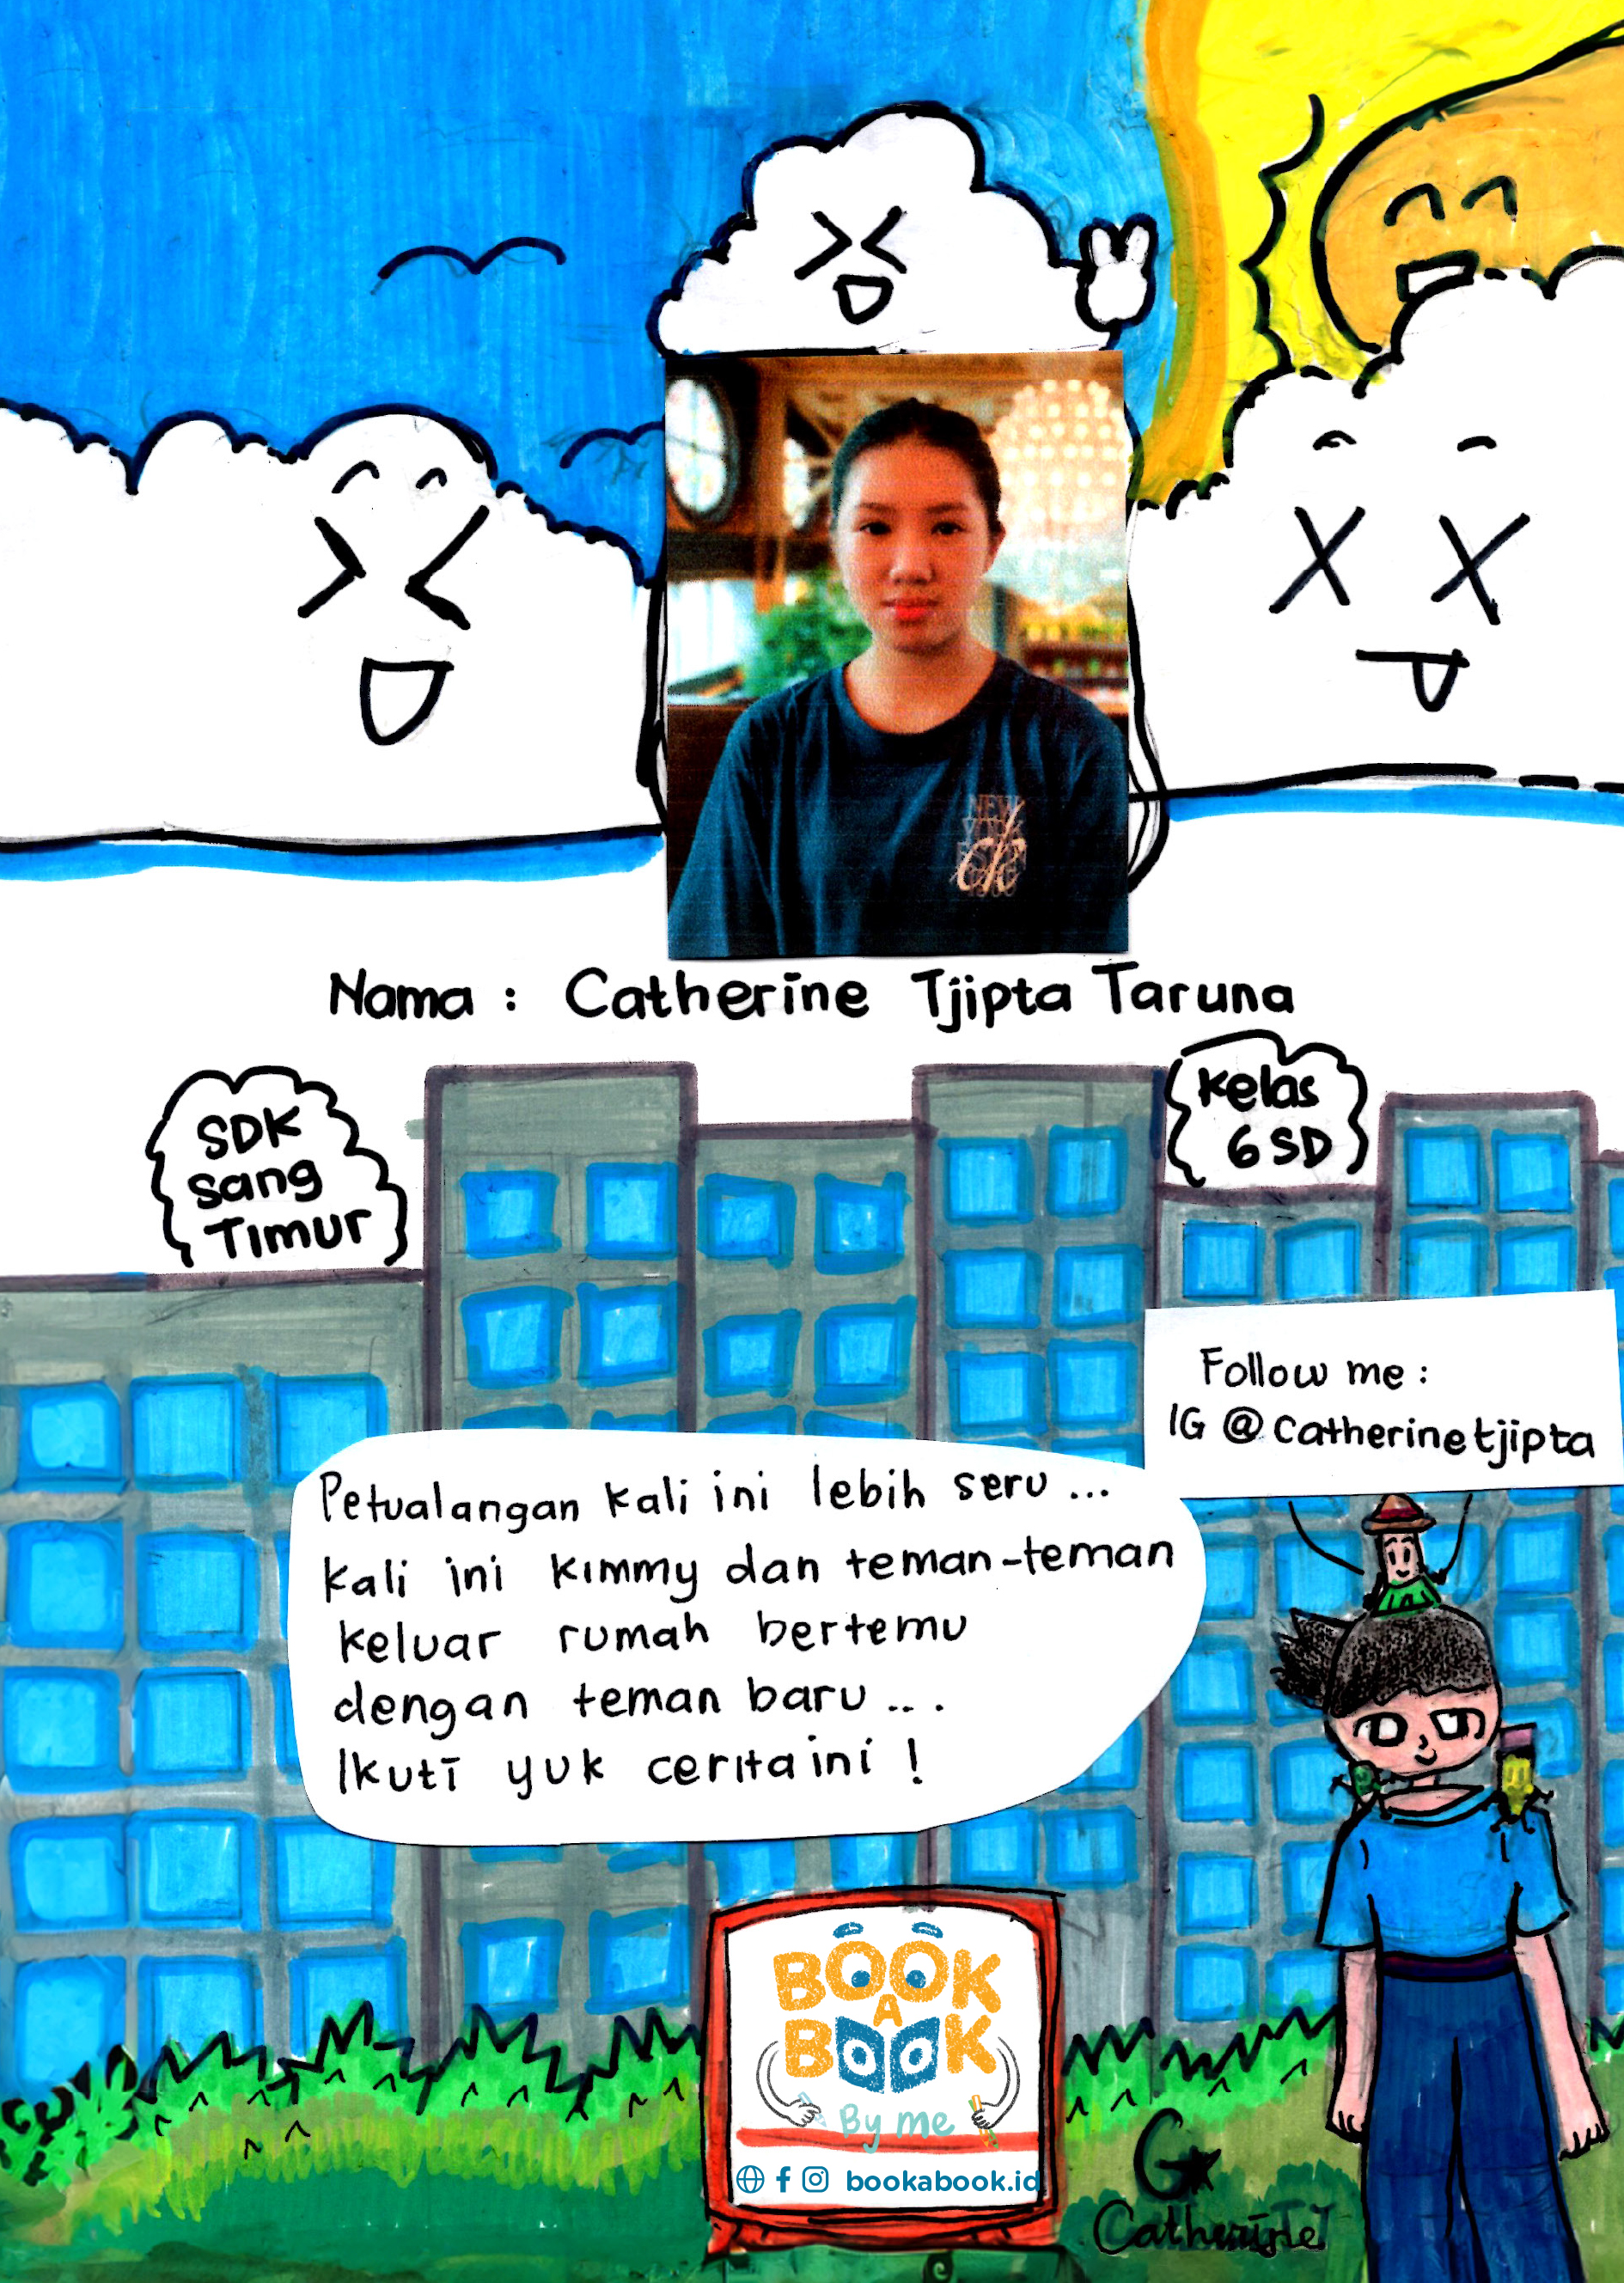 NEW
YORK
ck
Nama : Catherine Tjipta Taruna
SDK
Sang
Timur
Kelas
6 SD
Follow me :
IG @catherinetjipta
Petualangan kali ini lebih seru ...
kali ini kimmy dan teman-teman
keluar rumah bertemu
dengan teman baru ...
Ikuti yuk cerita ini !
BOOK
A
BOOK
By me
bookabook.id
Catherine